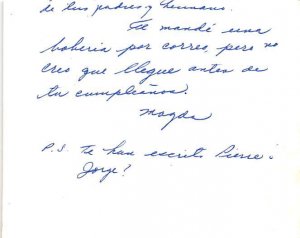 de tus padres y hermano.
Te mandé una
bobería por correo, pero no
creo que llegue antes de
tu cumpleaños.
Magda
P.S. Te han escrito Pierre o
Jorge?